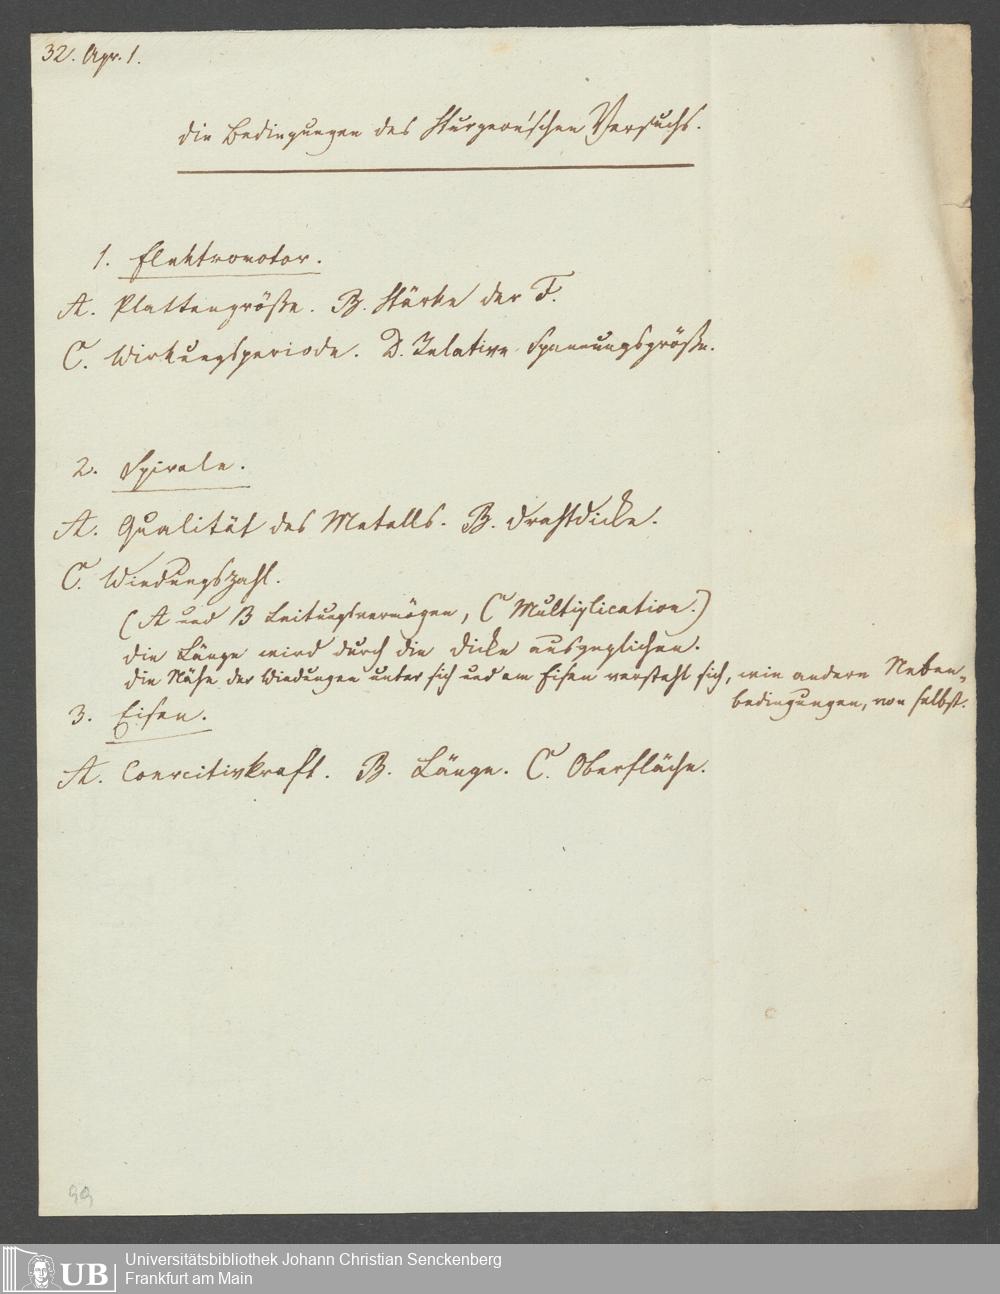 32. Apr. 1.
die Bedingungen des Sturgeon'schen Versuchs.
1. Elektromotor.
A. Plattengröße. B. Stärke der F.
C. Wirkungsperiode. D. Relative Spannungsgröße.
2. Spirale.
A. Qualität des Metalls. B. Drahtdicke.
C. Windungszahl.
(A und B Leitungsvermögen, C Multiplication.)
die Länge wird durch die Dicke ausgeglichen.
die Nähe der Windungen unter sich und am Eisen versteht sich, wie andere Neben-
bedingungen, von selbst.
3. Eisen.
A. Coercitivkraft. B. Länge. C. Oberfläche.
99
UB
Universitätsbibliothek Johann Christian Senckenberg
Frankfurt am Main